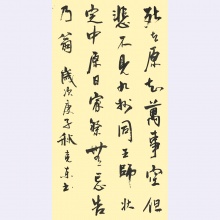 死去原知萬事空但
悲不見九州同王師北
定中原日家祭無忘告
乃翁 歲次庚子秋書